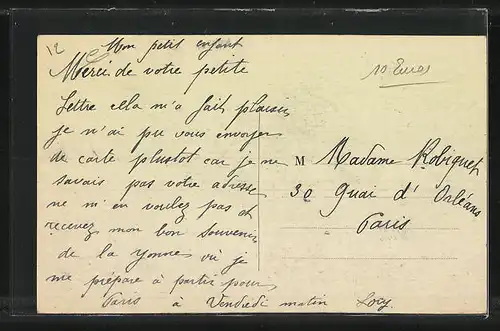 12
10 Euros
Mon petit enfant
Merci de votre petite
Lettre ella m'a fait plaisir
je n'ai pu vous envoyer
de carte plustot car je ne
savais pas votre adresse
ne m'en voulez pas et
recevez mon bon souvenir
de la Yonne ou je
me prépare à partir pour
Paris à Vendredi matin
M Madame Robiquet
30 Quai d'Orléans
Paris